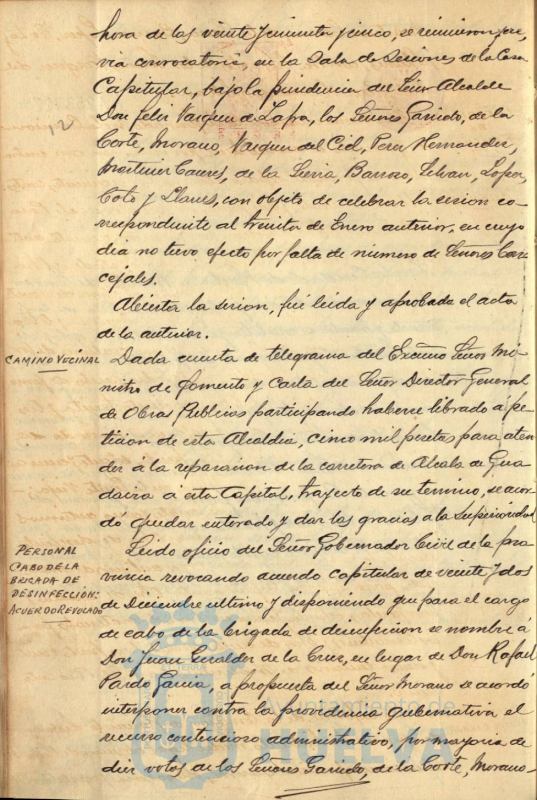 hora de las veinte y cuarenta y cinco, se reunieron pre-
via convocatoria, en la Sala de Sesiones de la Casa
Capitular, bajo la presidencia del Señor Alcalde
Don Felix Vazquez de Zafra, los Señores Garrido, de la
12
Corte, Morano, Vazquez del Cid, Perez Hernandez,
Martinez de la Sierra, Barroso, Lopez,
Coto y Llanes, con objeto de celebrar la sesion co-
rrespondiente al treinta de Enero anterior, en cuyo
dia no tuvo efecto por falta de numero de Señores Con-
cejales.
Abierta la sesion, fué leida y aprobada el acta
de la anterior.
CAMINO VECINAL
Dada cuenta de telegrama del Excmo Señor Mi-
nistro de Fomento y Carta del Señor Director General
de Obras Publicas participando haberse librado a pe-
ticion de esta Alcaldia, cinco mil pesetas para aten-
der á la reparacion de la carretera de Alcala de Gua-
daira a esta Capital, trayecto de su termino, se acor-
dó quedar enterado y dar las gracias a la Superioridad
PERSONAL
CABO DE LA
BRIGADA DE
DESINFECCIÓN:
ACUERDO REVOCADO
Leido oficio del Señor Gobernador Civil de la pro-
vincia revocando acuerdo capitular de veinte y dos
de Diciembre ultimo y disponiendo que para el cargo
de cabo de la brigada de desinfeccion se nombre á
Don Juan Giraldez de la Cruz, en lugar de Don Rafael
Pardo Garcia, a propuesta del Señor Morano se acordó
interponer contra la providencia gubernativa el
recurso contencioso administrativo, por mayoria de
diez votos de los Señores Garrido, de la Corte, Morano-
Ayuntamiento de
HUELVA